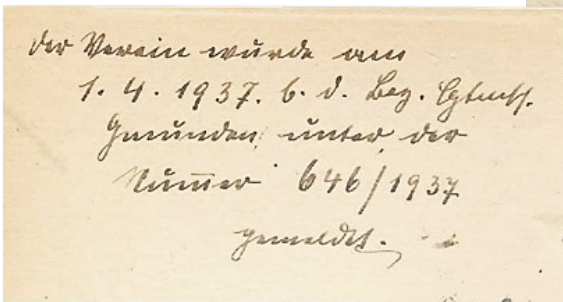 Der Verein wurde am
1. 4. 1937. b. d. Bez. Hptmsch.
Gmunden unter der
Nummer 646/1937
gemeldet.